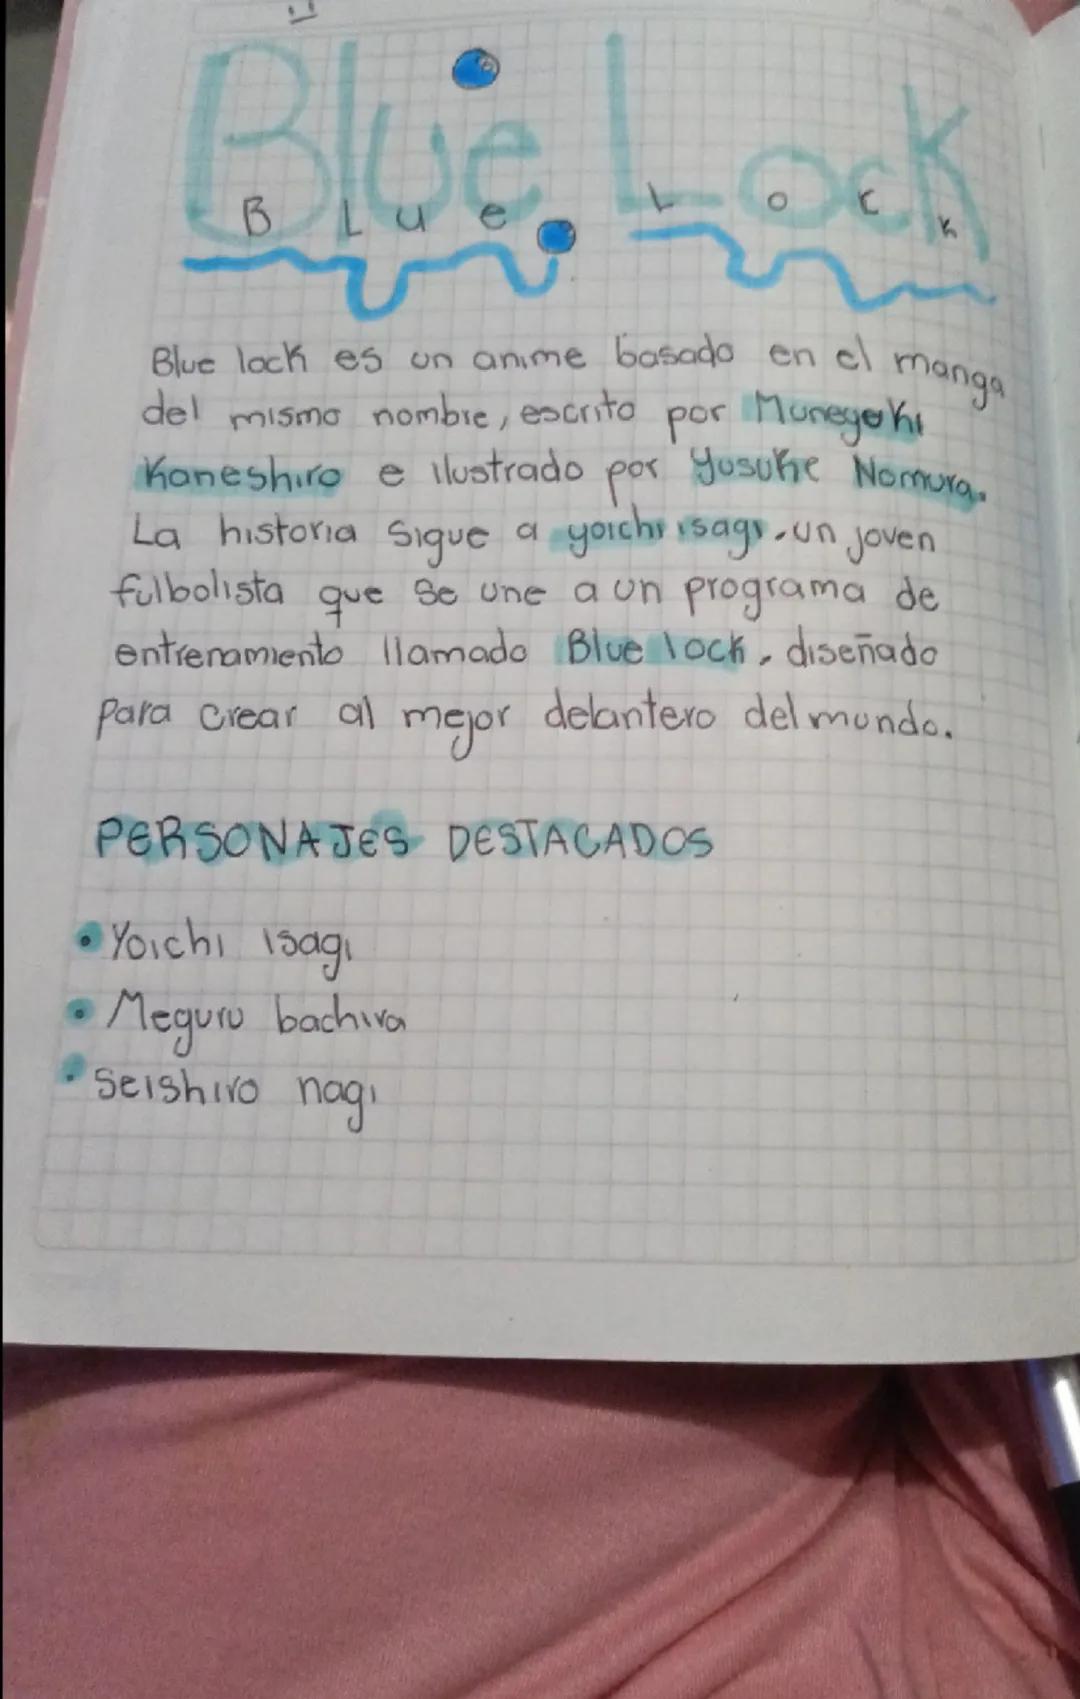 Blue Lock
Blue Lock
Blue lock es un anime basado en el manga
del mismo nombre, escrito por Muneyuki
Kaneshiro e ilustrado por Yusuke Nomura.
La historia Sigue a yoichi isagi, un joven
fulbolista que se une a un programa de
entrenamiento llamado Blue lock, diseñado
para crear al mejor delantero del mundo.
PERSONAJES DESTACADOS
• Yoichi isagi
• Meguru bachira
• Seishiro nagi